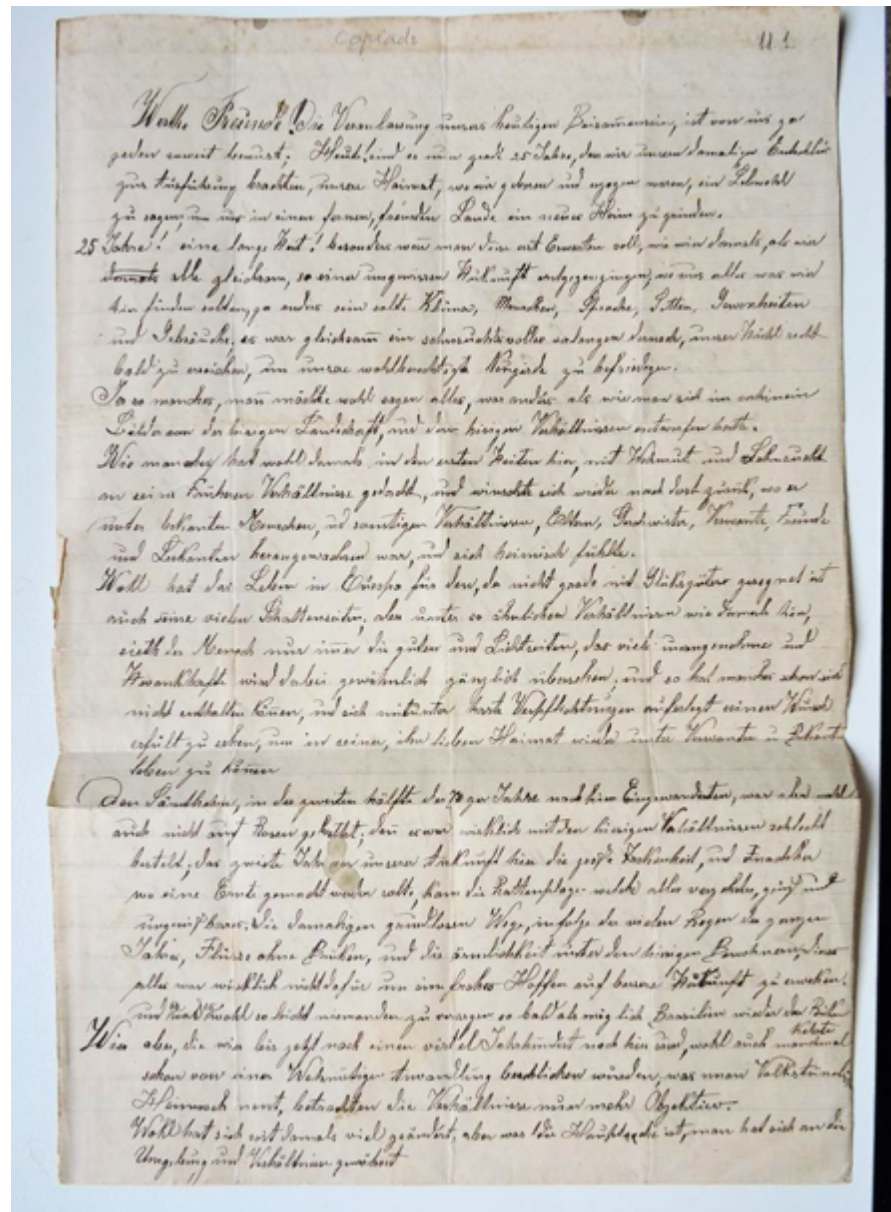 copiado
11 1.
Werthe Freunde! Die Veranlassung unsers heutigen Beisammensein, ist von uns ja
jeden soweit bewust; Heute, sind es nun grade 25 Jahre, das wir unsern damaligen Entschluß
zur Ausführung brachten, unsere Heimat, wo wir geboren und erzogen waren, ein Lebewohl
zu sagen, um uns in einen fernen, fremden Lande ein neues Heim zu gründen.
25 Jahre! eine lange Zeit! besonders wenn man diese erst Erwarten soll, wie wir damals, als wir
damals alle gleichsam, so einer ungewissen Zukunft entgegengingen, wo uns alles was wir
hier finden sollten, ja anders sein sollte. Klima, Menschen, Sprache, Sitten, Gewonheiten
und Gebräuche, es war gleichsam ein sehnsuchtsvolles verlangen darnach, unser Ziel recht
bald zu erreichen, um unsere wohlberechtigte Neugirde zu befriedigen.
Ja so manches, man möchte wohl sagen alles, war anders als wie man sich im vorhinein
Bilder von der hiesigen Landschaft, und den hiesigen Verhältnissen entworfen hatte.
Wie mancher hat wohl damals, in den ersten Zeiten hier, mit Wehmut und Sehnsucht
an seine Früheren Verhältnisse gedacht, und wünschte sich wieder nach dort zurück, wo er
unter bekannten Menschen, und sonstigen Verhältnissen, Eltern, Geschwister, Verwante, Freunde
und Bekanten herangewachsen war, und sich heimisch fühlte.
Wohl hat das Leben in Europa für den, der nicht grade mit Glücksgüter gesegnet ist
auch seine vielen Schattenseiten, aber unter so ähnlichen Verhältnissen wie damals hier,
sieth der Mensch nur immer die guten und Lichtseiten, das viele unangenehme und
Krankhafte wird dabei gewöhnlich gänzlich übersehen, und so hat mancher schon sich
nicht enthalten können, und sich mitunter harte Verpflichtungen auferlegt seinen Wunsch
erfült zu sehen, um in seiner, ihm lieben Heimat wieder unter Verwante u Bekante
leben zu können
Den in der zweiten hälfte der 70ger Jahre nach hier Eingewanderten, war aber wohl
auch nicht auf Rosen gebettet, den es war wirklich mit den hiesigen Verhältnissen schlecht
bestelt; das zweite Jahr an unserer Ankunft hier die große Trockenheit, und Nachher
wo eine Ernte gemacht werden sollte, kam die Rattenplage welche alles verzehrte, ganz und
. Die damaligen grundlosen Wege, infolge der vielen Regen der ganzen
Jahre, Flüsse ohne Brüken, und die ärmlichkeit unter den hiesigen Bewohnern, dieses
alles war wirklich nicht dafür um ein frohes Hoffen auf bessere Zukunft zu erweken.
und wohl so leicht niemanden zu versagen so bald als möglich Brasilien wieder den Rüken
kehrte
Wir aber, die wir bis jetzt nach einen viertel Jahrhundert noch hier sind, wohl auch manchmal
schon von einer Wehmütigen Anwandling beschlichen wurden, was man Volkstümlich
Heimweh nent, betrachten die Verhältnisse nun mehr Objektiv.
Wohl hat sich erst damals viel geändert, aber was die Hauptsache ist, man hat sich an die
Umgebung und Verhältnisse gewöhnt